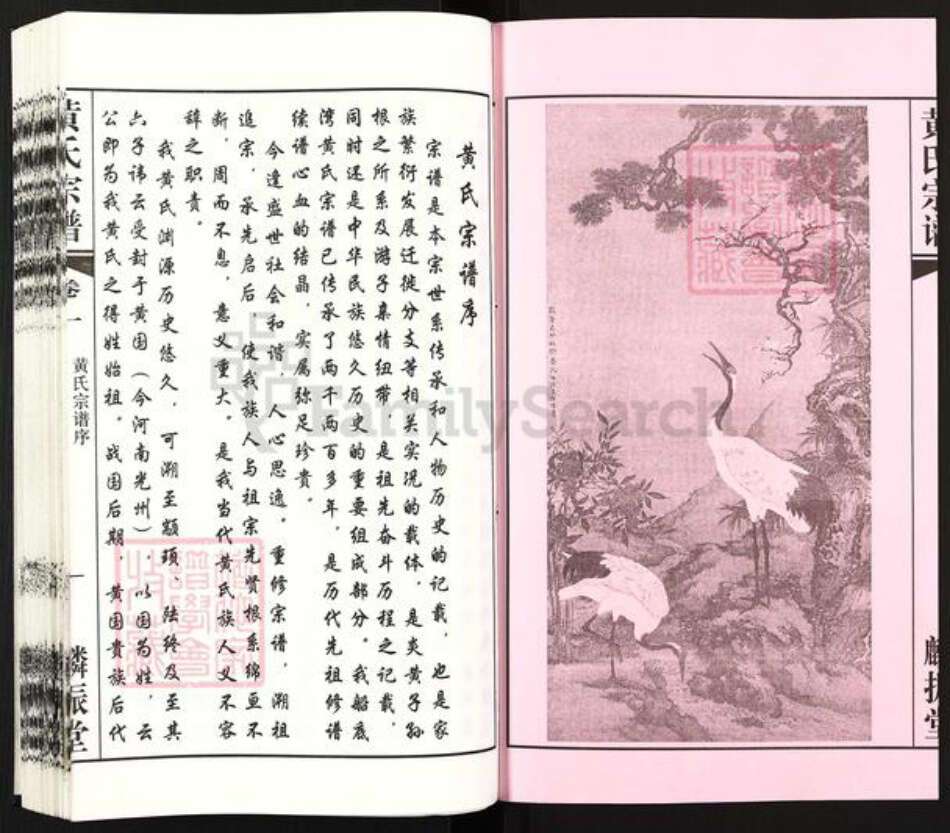 黄氏宗谱序
宗谱是本宗世系传承和人物历史的记载，也是家
族繁衍发展迁徙分支等相关实况的载体，是炎黄子孙
根之所系及游子亲情纽带，是祖先奋斗历程之记载，
同时还是中华民族悠久历史的重要组成部分。我船底
湾黄氏宗谱已传承了两千两百多年，是历代先祖修谱
续谱心血的结晶，实属弥足珍贵。
今逢盛世社会和谐，人心思通。重修宗谱，溯祖
追宗，承先启后，使我族人与祖宗先贤根系绵亘不
断，周而不息，意义重大。是我当代黄氏族人义不容
辞之职责。
我黄氏渊源历史悠久，可溯至颛顼、陆终及至其
六子讳云受封于黄国（今河南光州），以国为姓，云
公即为我黄氏之得姓始祖。战国后期，黄国贵族后代
黄氏宗谱
卷一
黄氏宗谱序
一
麟振堂
黄氏宗谱
麟振堂
FamilySearch